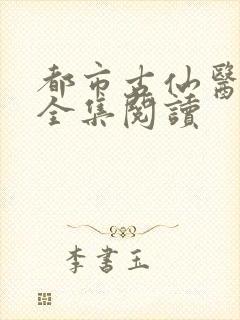 都市古仙醫
全集閱讀
李書玉